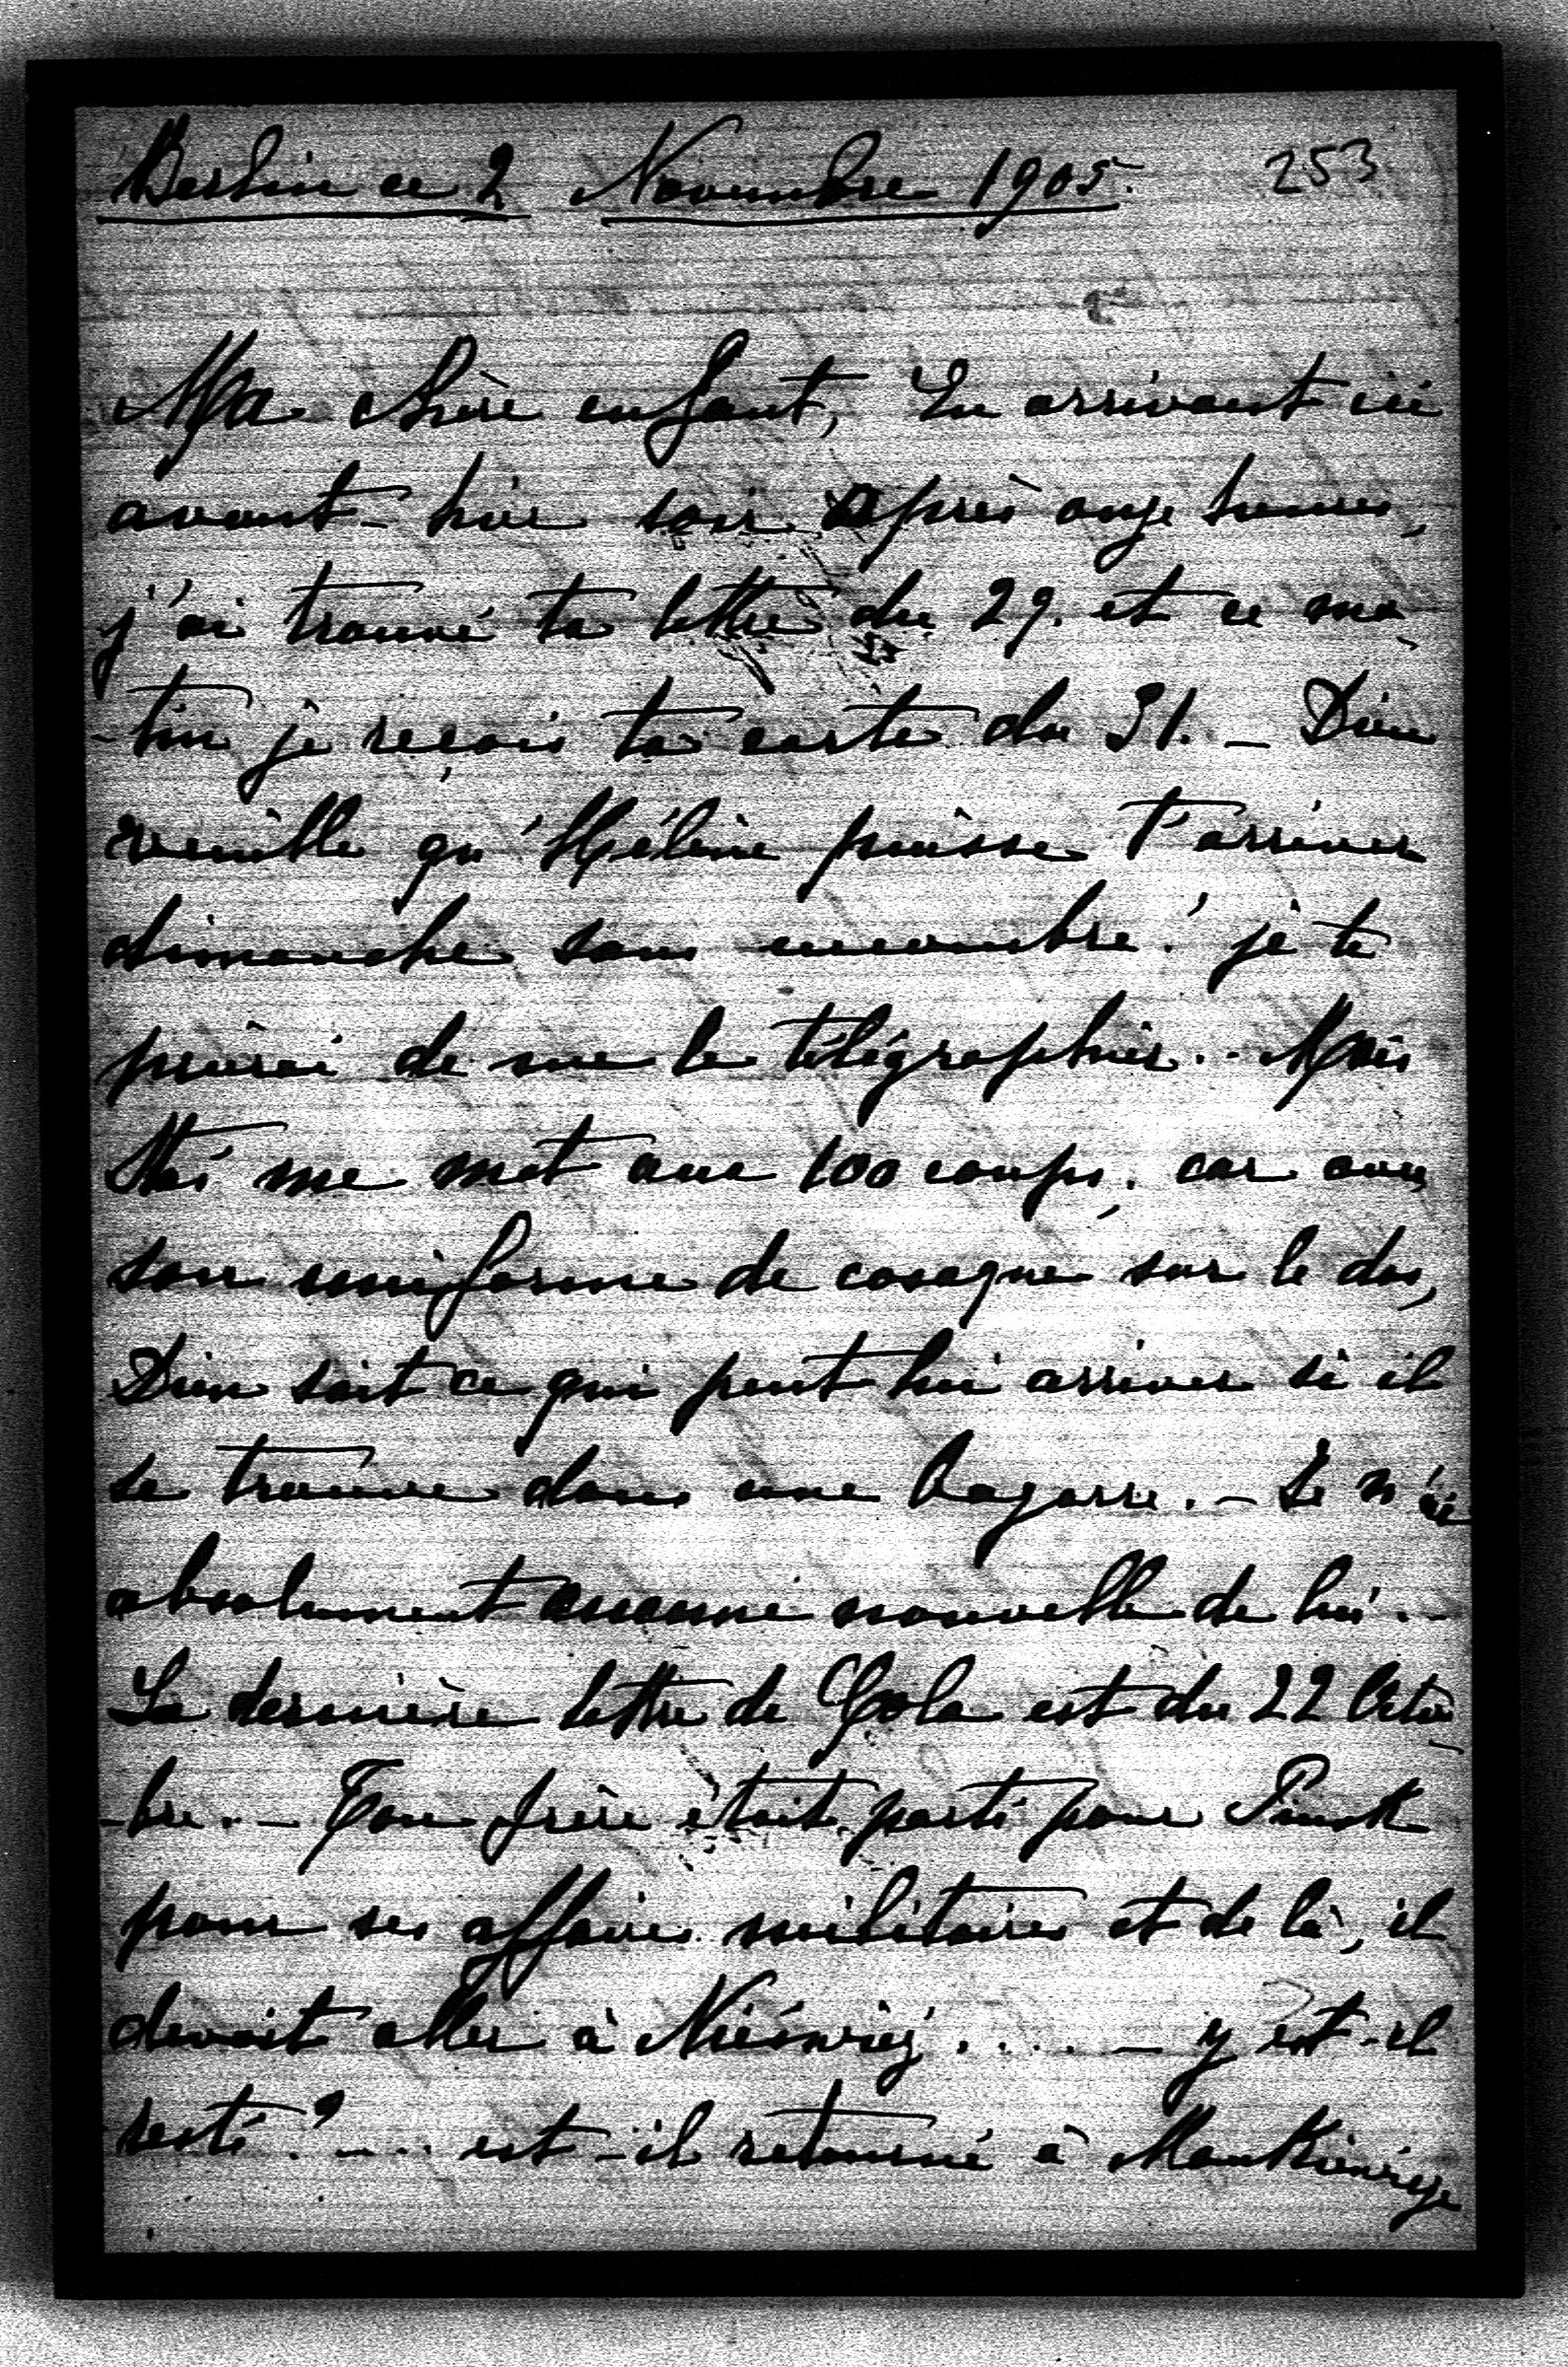 Berlin ce 2 Novembre 1905. 253
Ma chère enfant, En arrivant ici
avant-hier soir après onze heures,
j'ai trouvé ta lettre du 29. et ce ma-
-tin je reçois ta carte du 31. - Dieu
veuille qu'Hélène puisse t'arriver
dimanche sans encombre! je te
prierai de me le télégraphier.. Mais
me met aux 100 coups, car avec
son uniforme de cosaque sur le dos,
Dieu sait ce qui peut lui arriver si il
se trouve dans une bagarre. - Je n'ai
absolument aucune nouvelle de lui. -
La dernière lettre de Lola est du 22 Octo-
-bre. - Ton frère était parti pour Pinsk
pour ses affaires militaires et de là, il
devait aller à Nieśwież.... - y est-il
resté?.... est-il retourné à Mankiewicze